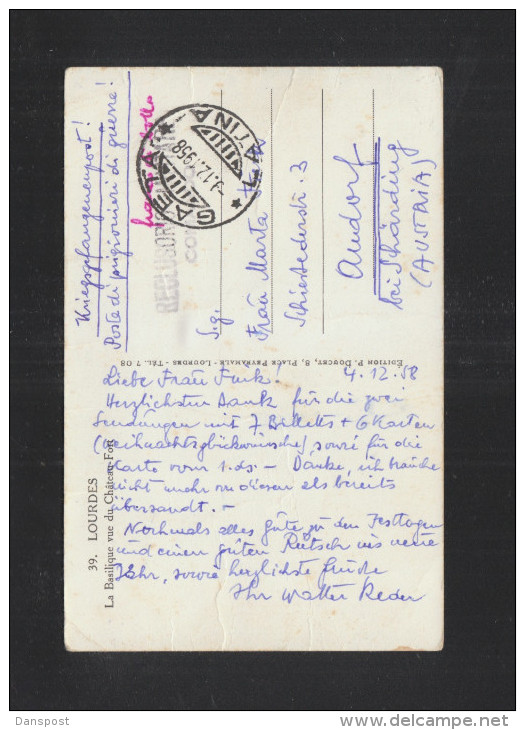 Kriegsgefangenenpost!
Poste di prigionieri di guerra!
RECLUSORIO
GAETA
LATINA
-3.12.1958
Sig.
Frau Marta
Schiestederstr. 3
Andorf
bei Schärding
(AUSTRIA)
EDITION P. DOUCET, 8, PLACE PEYRAMALE - LOURDES - TÉL. 7 08
4.12.58
Liebe Frau Funk!
Herzlichsten Dank für die zwei
Sendungen mit 7 Billetts + 6 Karten
(Weihnachtsglückwünsche), sowie für die
Karte vom 1. ds. - Danke, ich brauche
nicht mehr von diesen als bereits
übersandt. -
Nochmals alles gute zu den Festtagen
und einen guten Rutsch ins neue
Jahr, sowie herzlichste Grüße
Ihr Walter Reder
39. LOURDES
La Basilique vue du Château-Fort
Danspost
www.delcampe.net